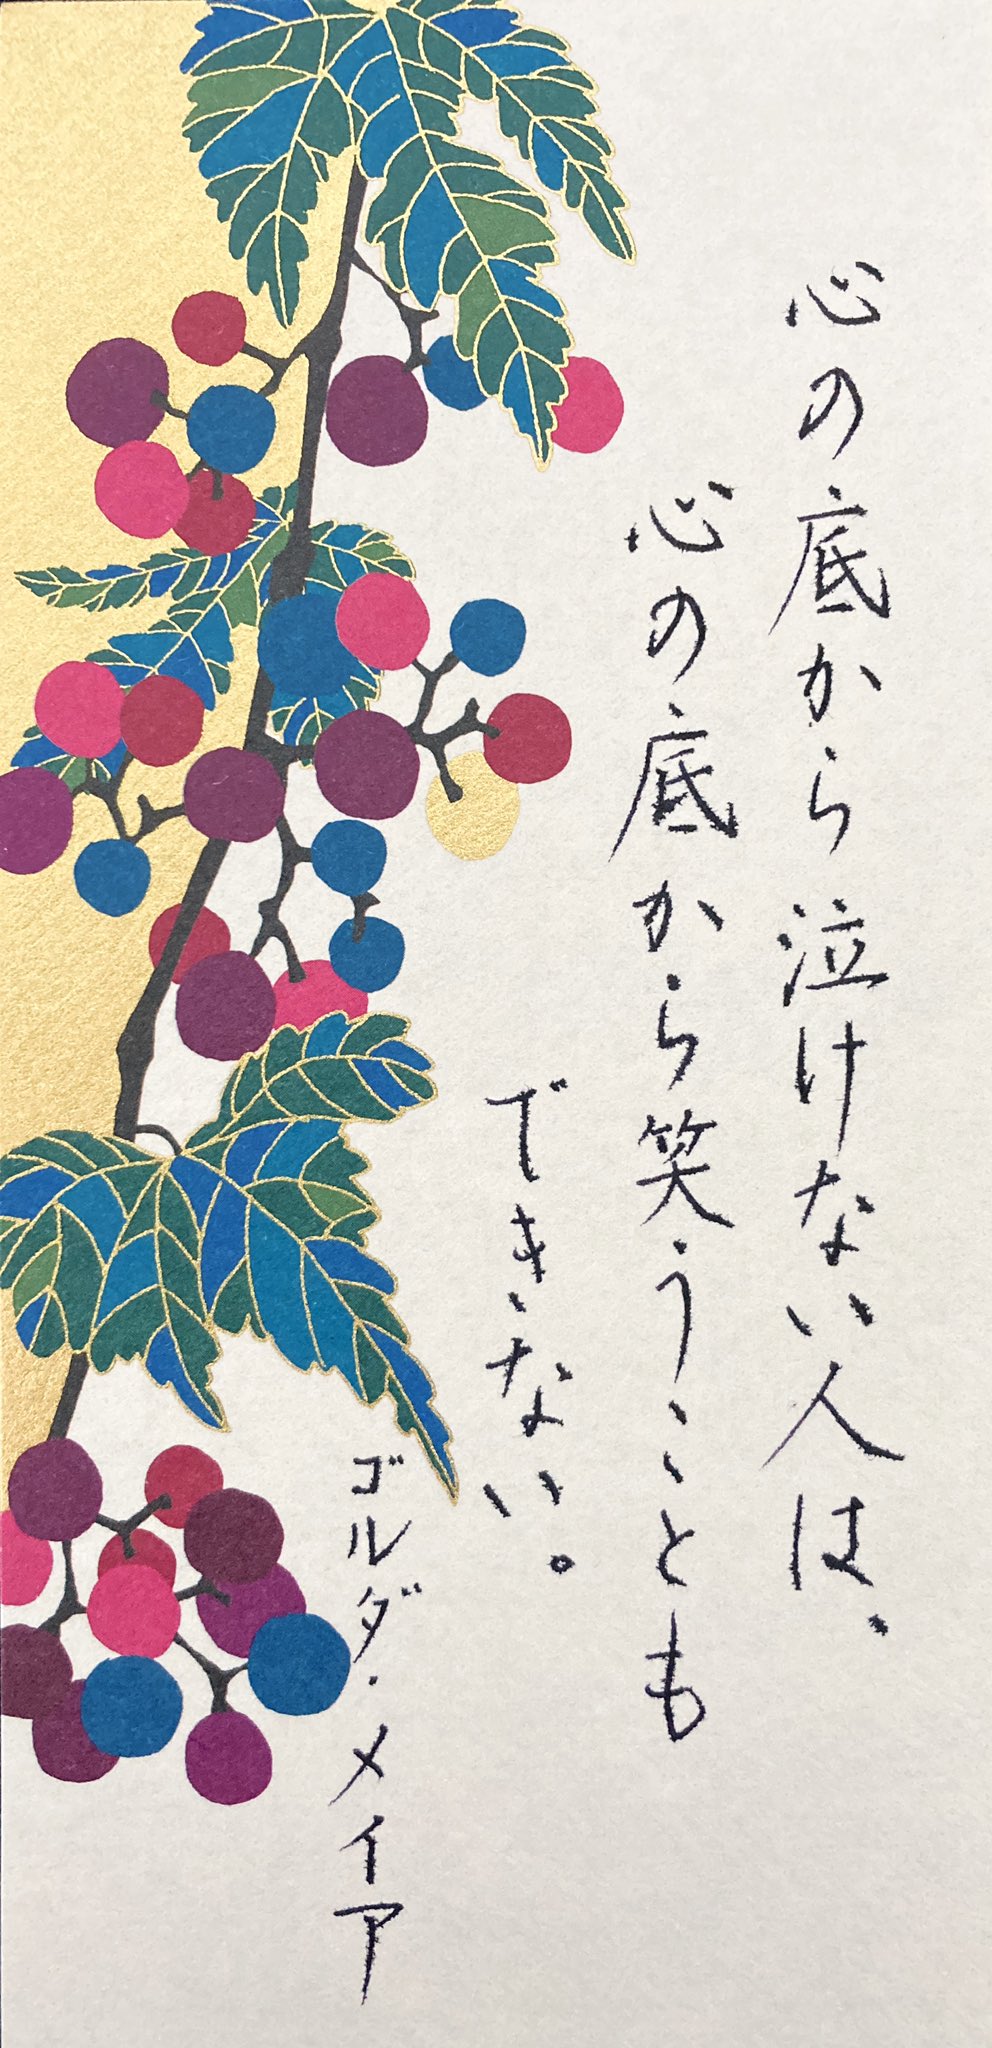 心の底から泣けない人は、
心の底から笑うことも
できない。
ゴルダ・メイア